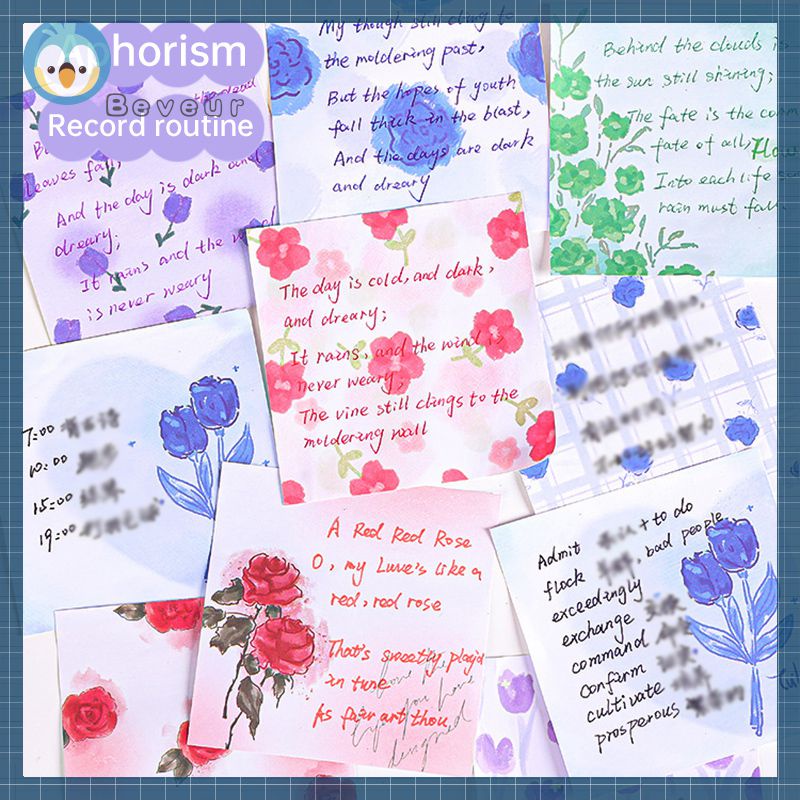 phorism
Beveur
Record routine
the dead
leaves fall,
And the day is dark and
dreary;
It rains and the wind
is never weary
My though still cling to
the moldering past,
But the hopes of youth
fall thick in the blast,
And the days are dark
and dreary
Behind the clouds is
the sun still shining;
The fate is the com
fate of all,
Into each life so
rain must fall
The day is cold, and dark,
and dreary;
It rains, and the wind is
never weary;
The vine still clings to the
moldering wall
7:00
10:00
15:00
19:00
A Red Red Rose
O, my Luve's like a
red, red rose
That's sweetly play'd
in tune
As fair art thou
designed
Admit
+ to do
flock
, bad people
exceedingly
exchange
command
confirm
cultivate
prosperous